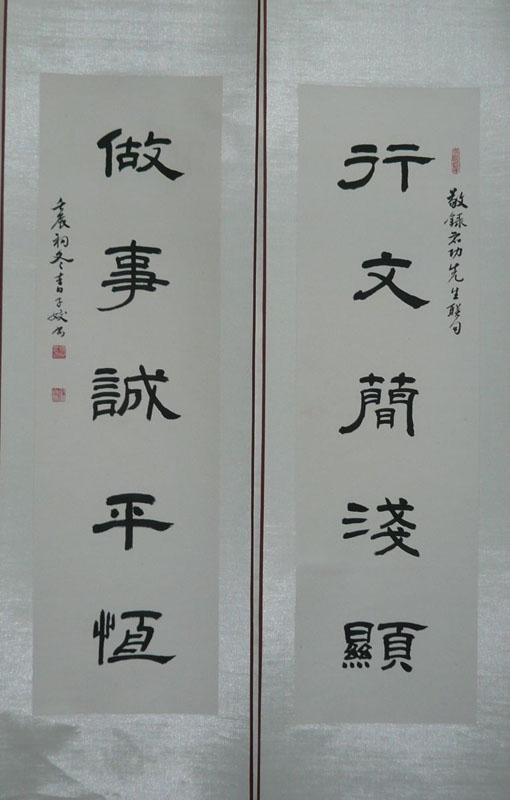 行文簡淺顯
做事誠平恆
敬錄啓功先生聯句
壬辰初冬